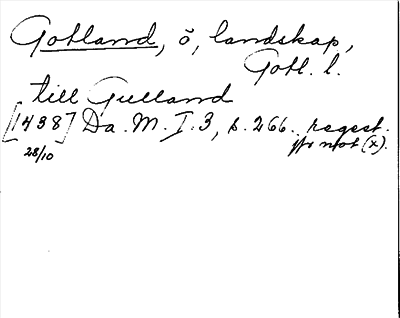 Gotland, ö, landskap,
Gotl. l.
till Gulland
[1438] Da. M. I. 3, s. 266. regest.
28/10
jfr not (x).